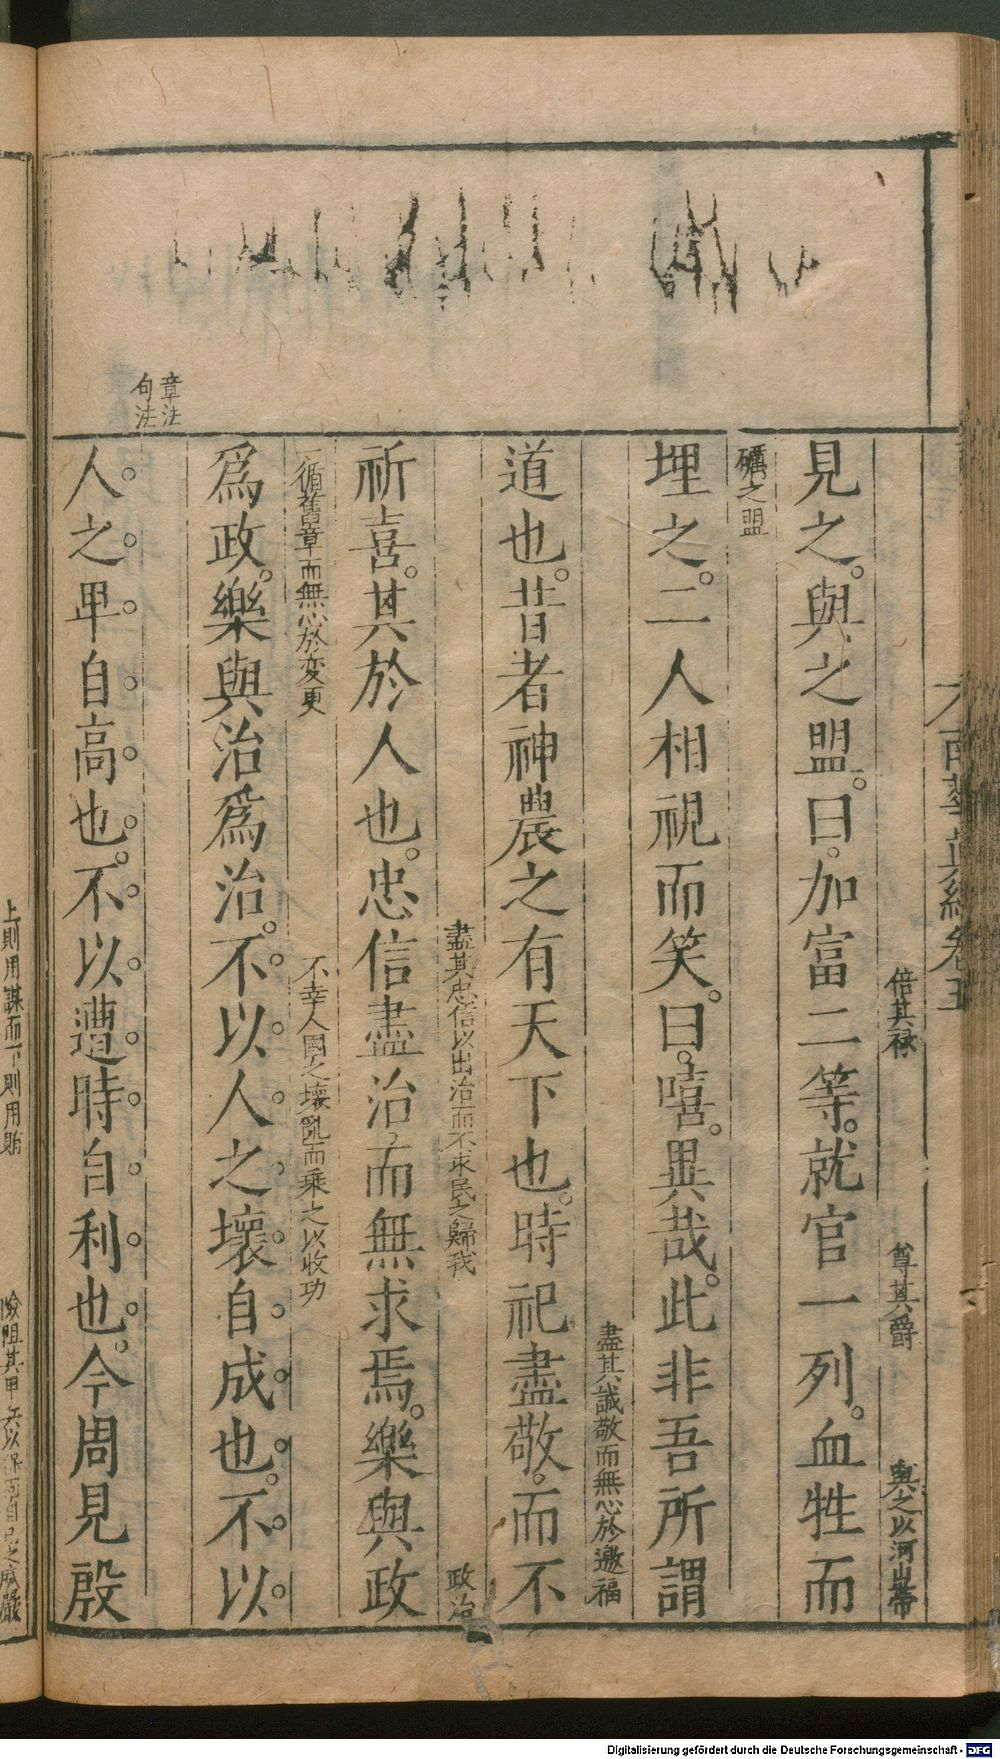 南華真經卷五
倍其祿 尊其爵 與之以河山帶
見之。與之盟。曰。加富二等。就官一列。血牲而
礪之盟
埋之。二人相視而笑。曰。嘻。異哉。此非吾所謂
盡其誠敬而無心於邀福
道也。昔者神農之有天下也。時祀盡敬。而不
盡其忠信以出治而不求民之歸我 政治
祈喜。其於人也。忠信盡治而無求焉。樂與政
循舊章而無心於変更 不幸人國之壞亂而乘之以收功
爲政。樂與治爲治。不以人之壞自成也。不以
章法
句法
人之卑自高也。不以遭時自利也。今周見殷
上則用謀而下則用賄
Digitalisierung gefördert durch die Deutsche Forschungsgemeinschaft - DFG